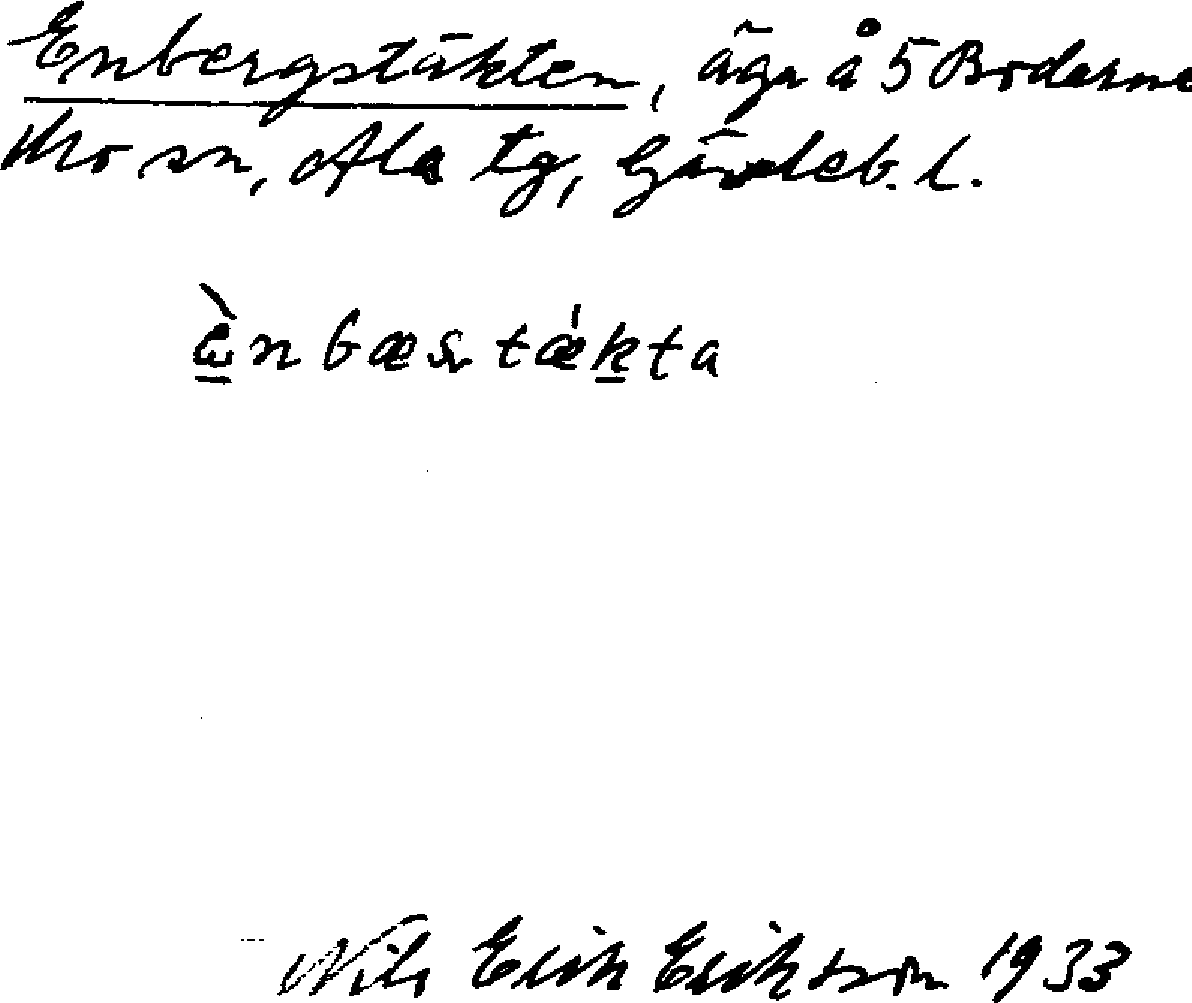 Enbergstäkten, äga å 5 Boderne
Mo sn, Ala tg, Gävleb. l.
è̱nbæstǽḵta
Nils Erik Eriksson 1933